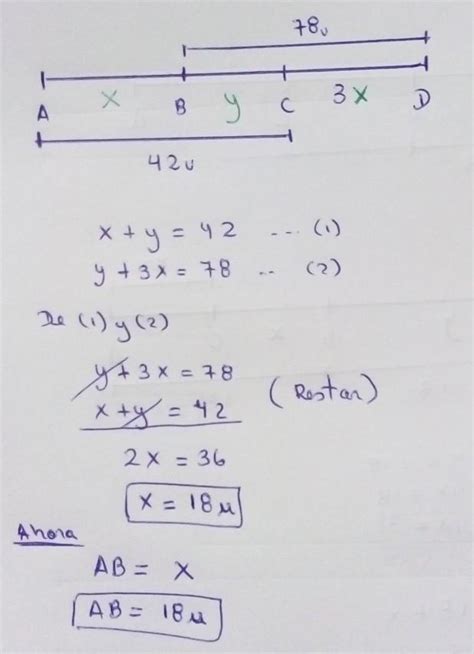 78u
x y 3x
A B C D
42u
x + y = 42 --- (1)
y + 3x = 78 .. (2)
De (1) y (2)
y + 3x = 78
x + y = 42 (Restar)
2x = 36
x = 18 u
Ahora
AB = x
AB = 18 u